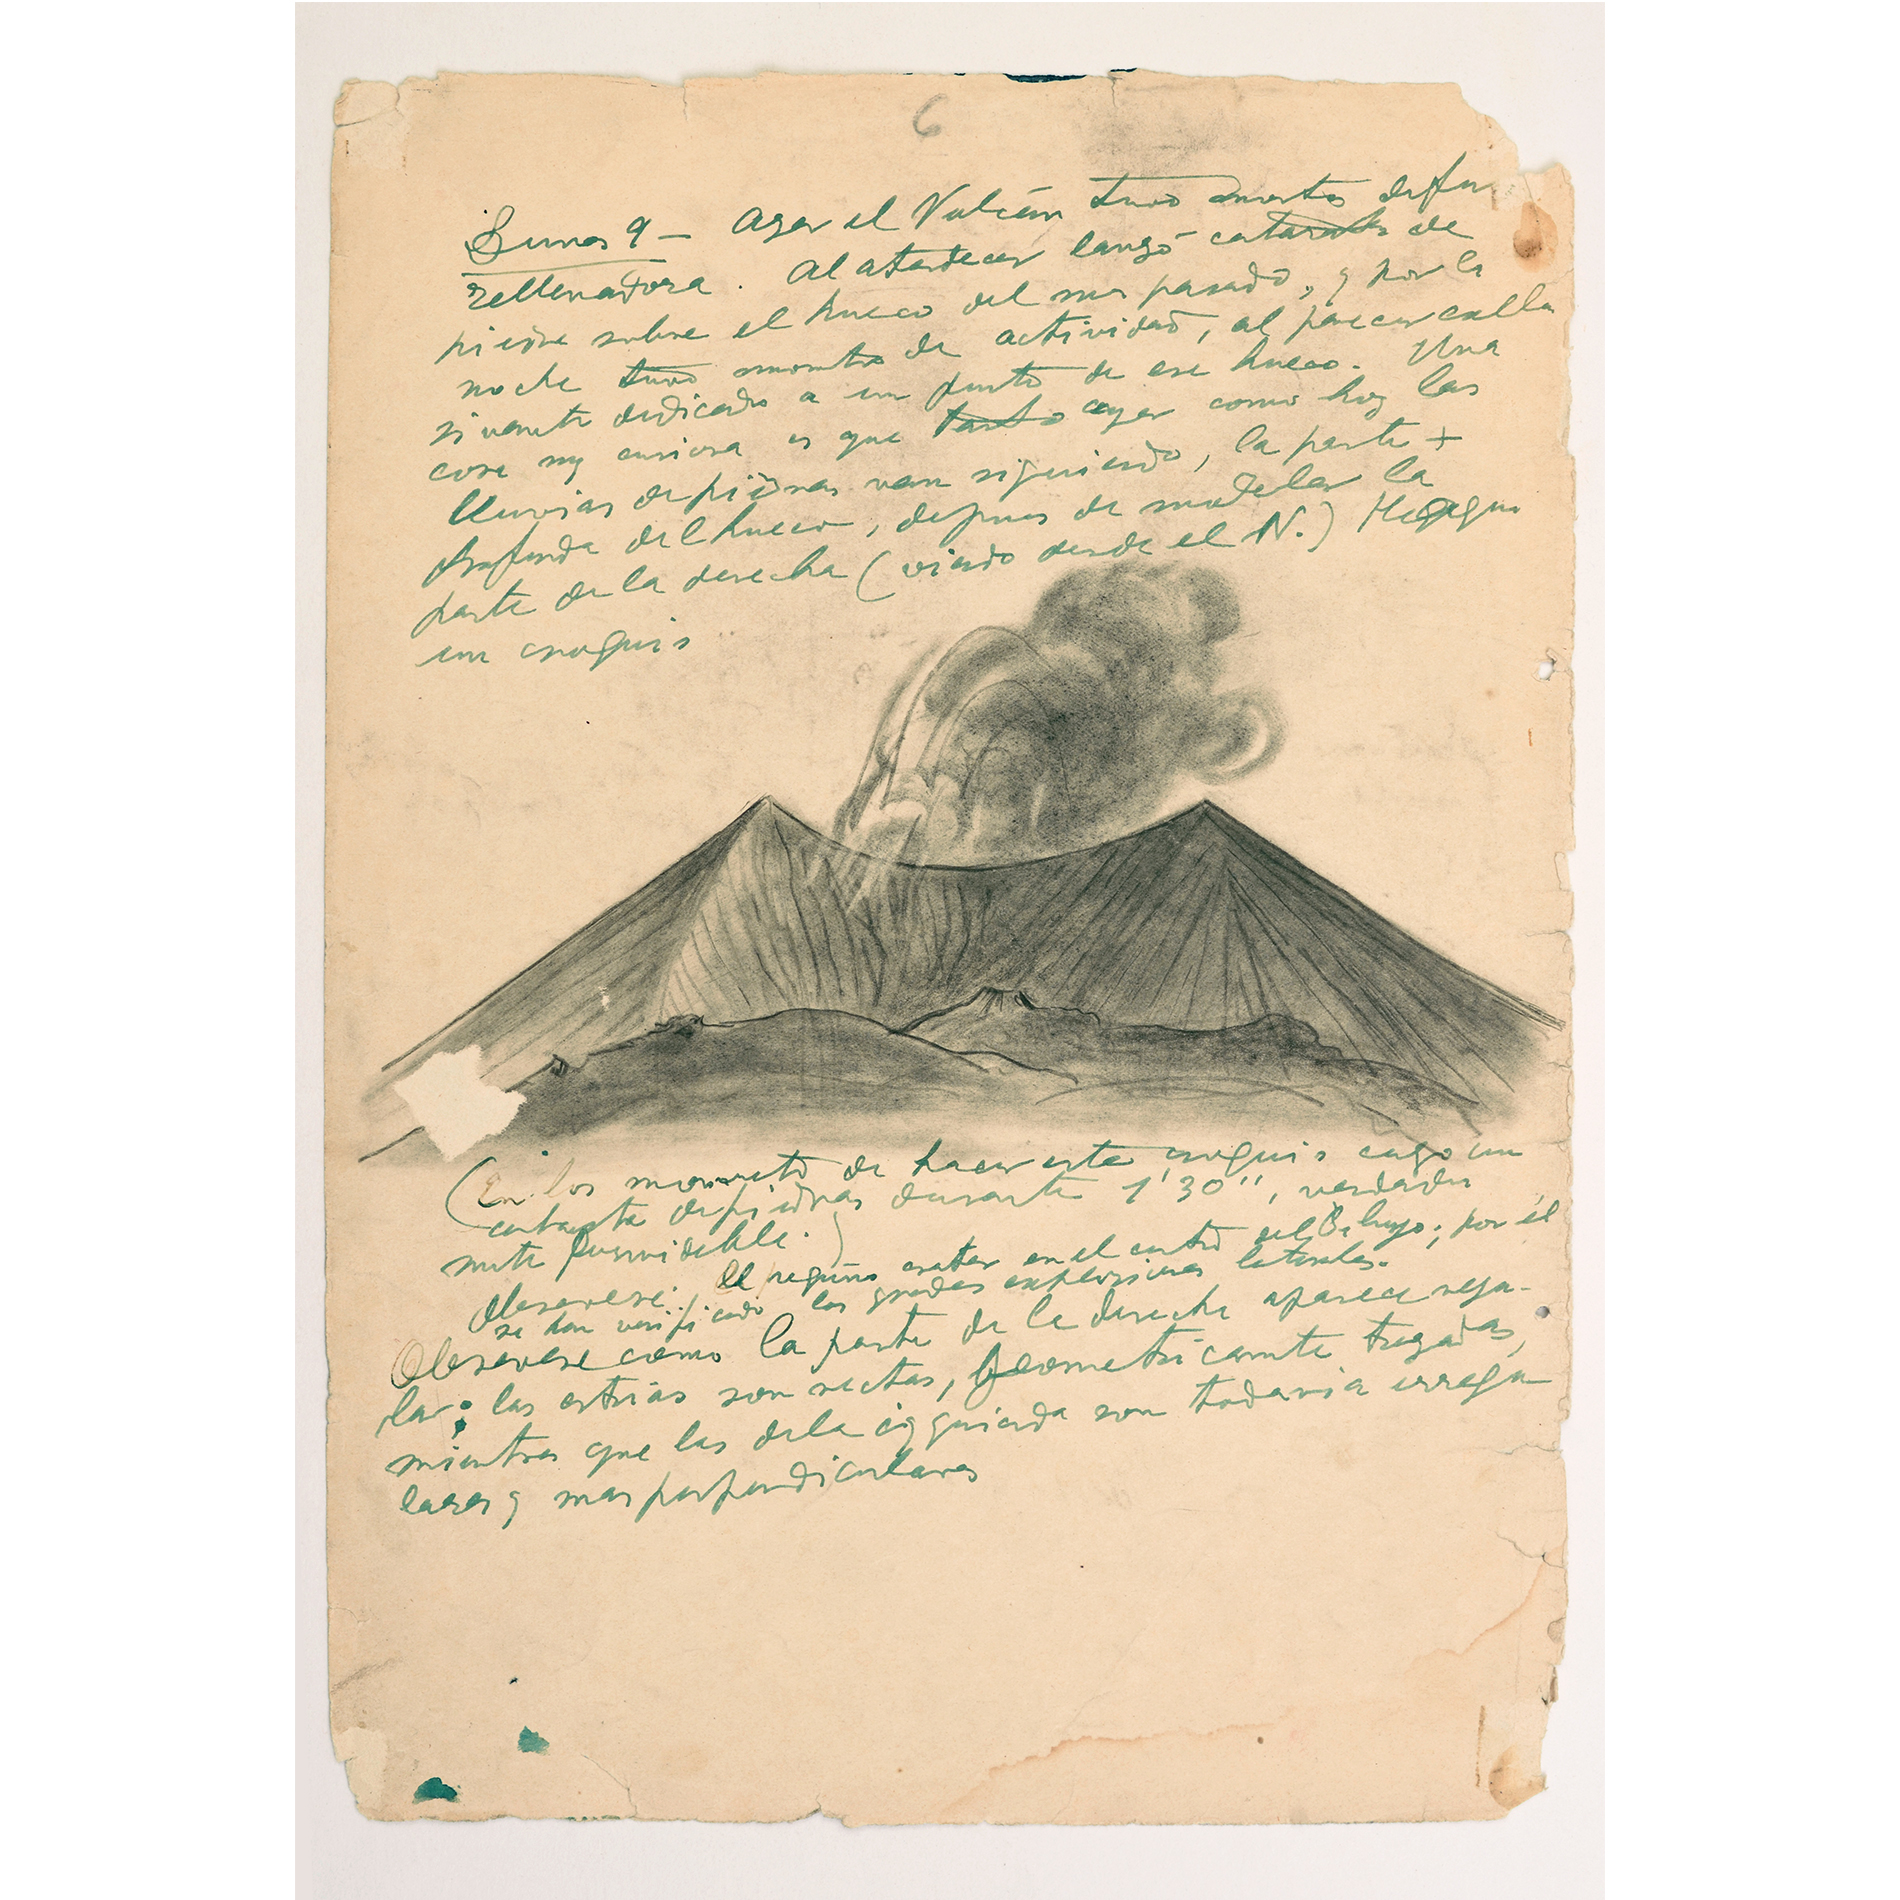 6
Lunes 9 — Ayer el Volcán tuvo
rellenadora. Al atardecer lanzó cataratas de
piedra sobre el hueco del mes pasado, y por la
noche tuvo momentos de actividad, al parecer exclu
sivamente dedicado a un punto de ese hueco. Una
cosa my curiosa es que tanto ayer como hoy las
lluvias de piedras van siguiendo, la parte +
profunda del hueco, despues de modelar la
parte de la derecha (viendo desde el N.) Hagaqui
un croquis
(En los momento de hacer este croquis cayo un
catarata de piedras durante 1'30'', verdadera
mente formidable.)
Observese: el pequeño crater en el centro del Dibujo; por él
se han verificado las grandes explosiones laterales.
Observese como la parte de la derecha aparece regu-
lar; las estrias son rectas, geometricamente trazadas,
mientras que las dela izquierda son todavia irregu
lares y mas perpendiculares